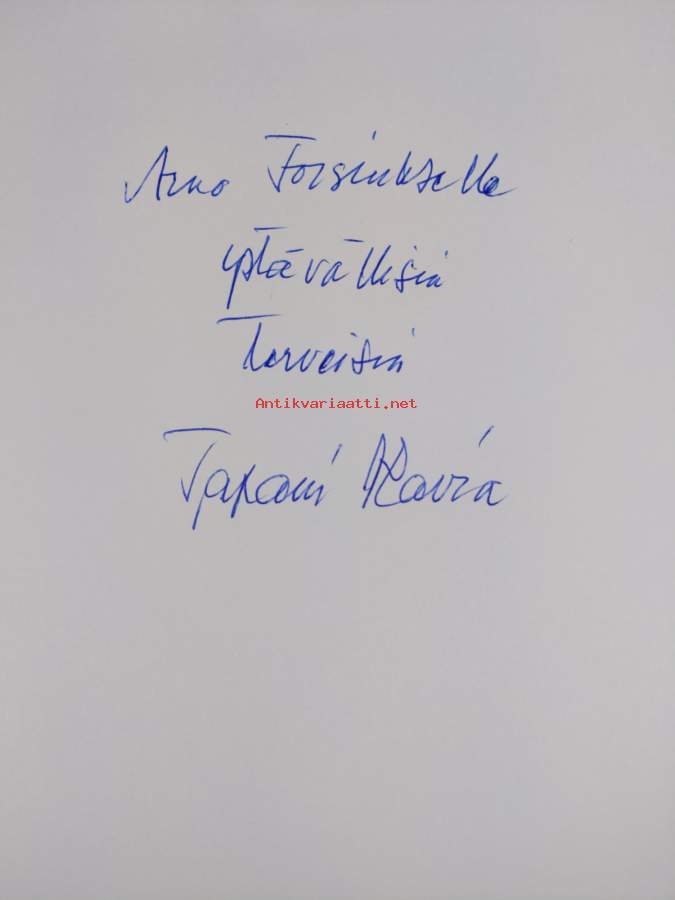 Arno Forsiukselle
ystävällisin
Terveisin
Antikvariaatti.net
Tapani